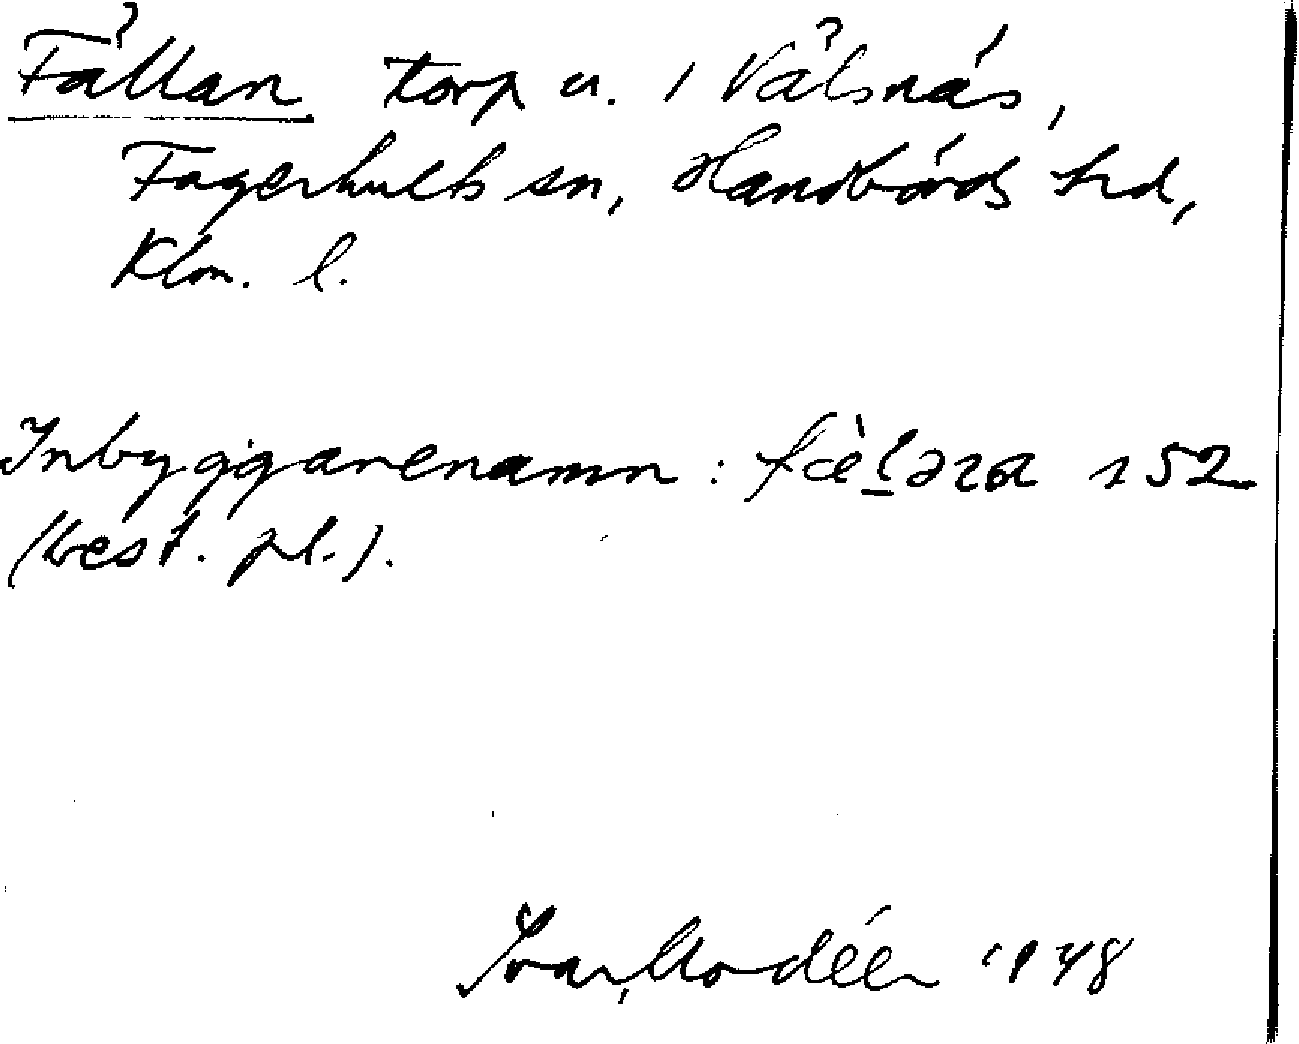 Fållan torp u. 1 Välsnäs,
Fagerhults sn, Handbörds hd,
Klm. l.
Inbyggarenamn: fæ̀l̠əra 152
(best. pl.).
Ivar Modéer 1948